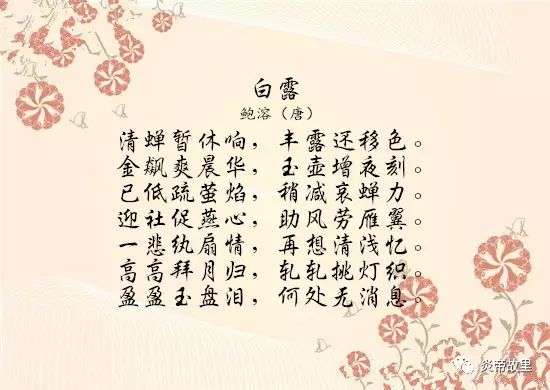 白露
鲍溶（唐）
清蝉暂休响，丰露还移色。
金飙爽晨华，玉壶增夜刻。
已低疏萤焰，稍减哀蝉力。
迎社促燕心，助风劳雁翼。
一悲纨扇情，再想清浅忆。
高高拜月归，轧轧挑灯织。
盈盈玉盘泪，何处无消息。
炎帝故里